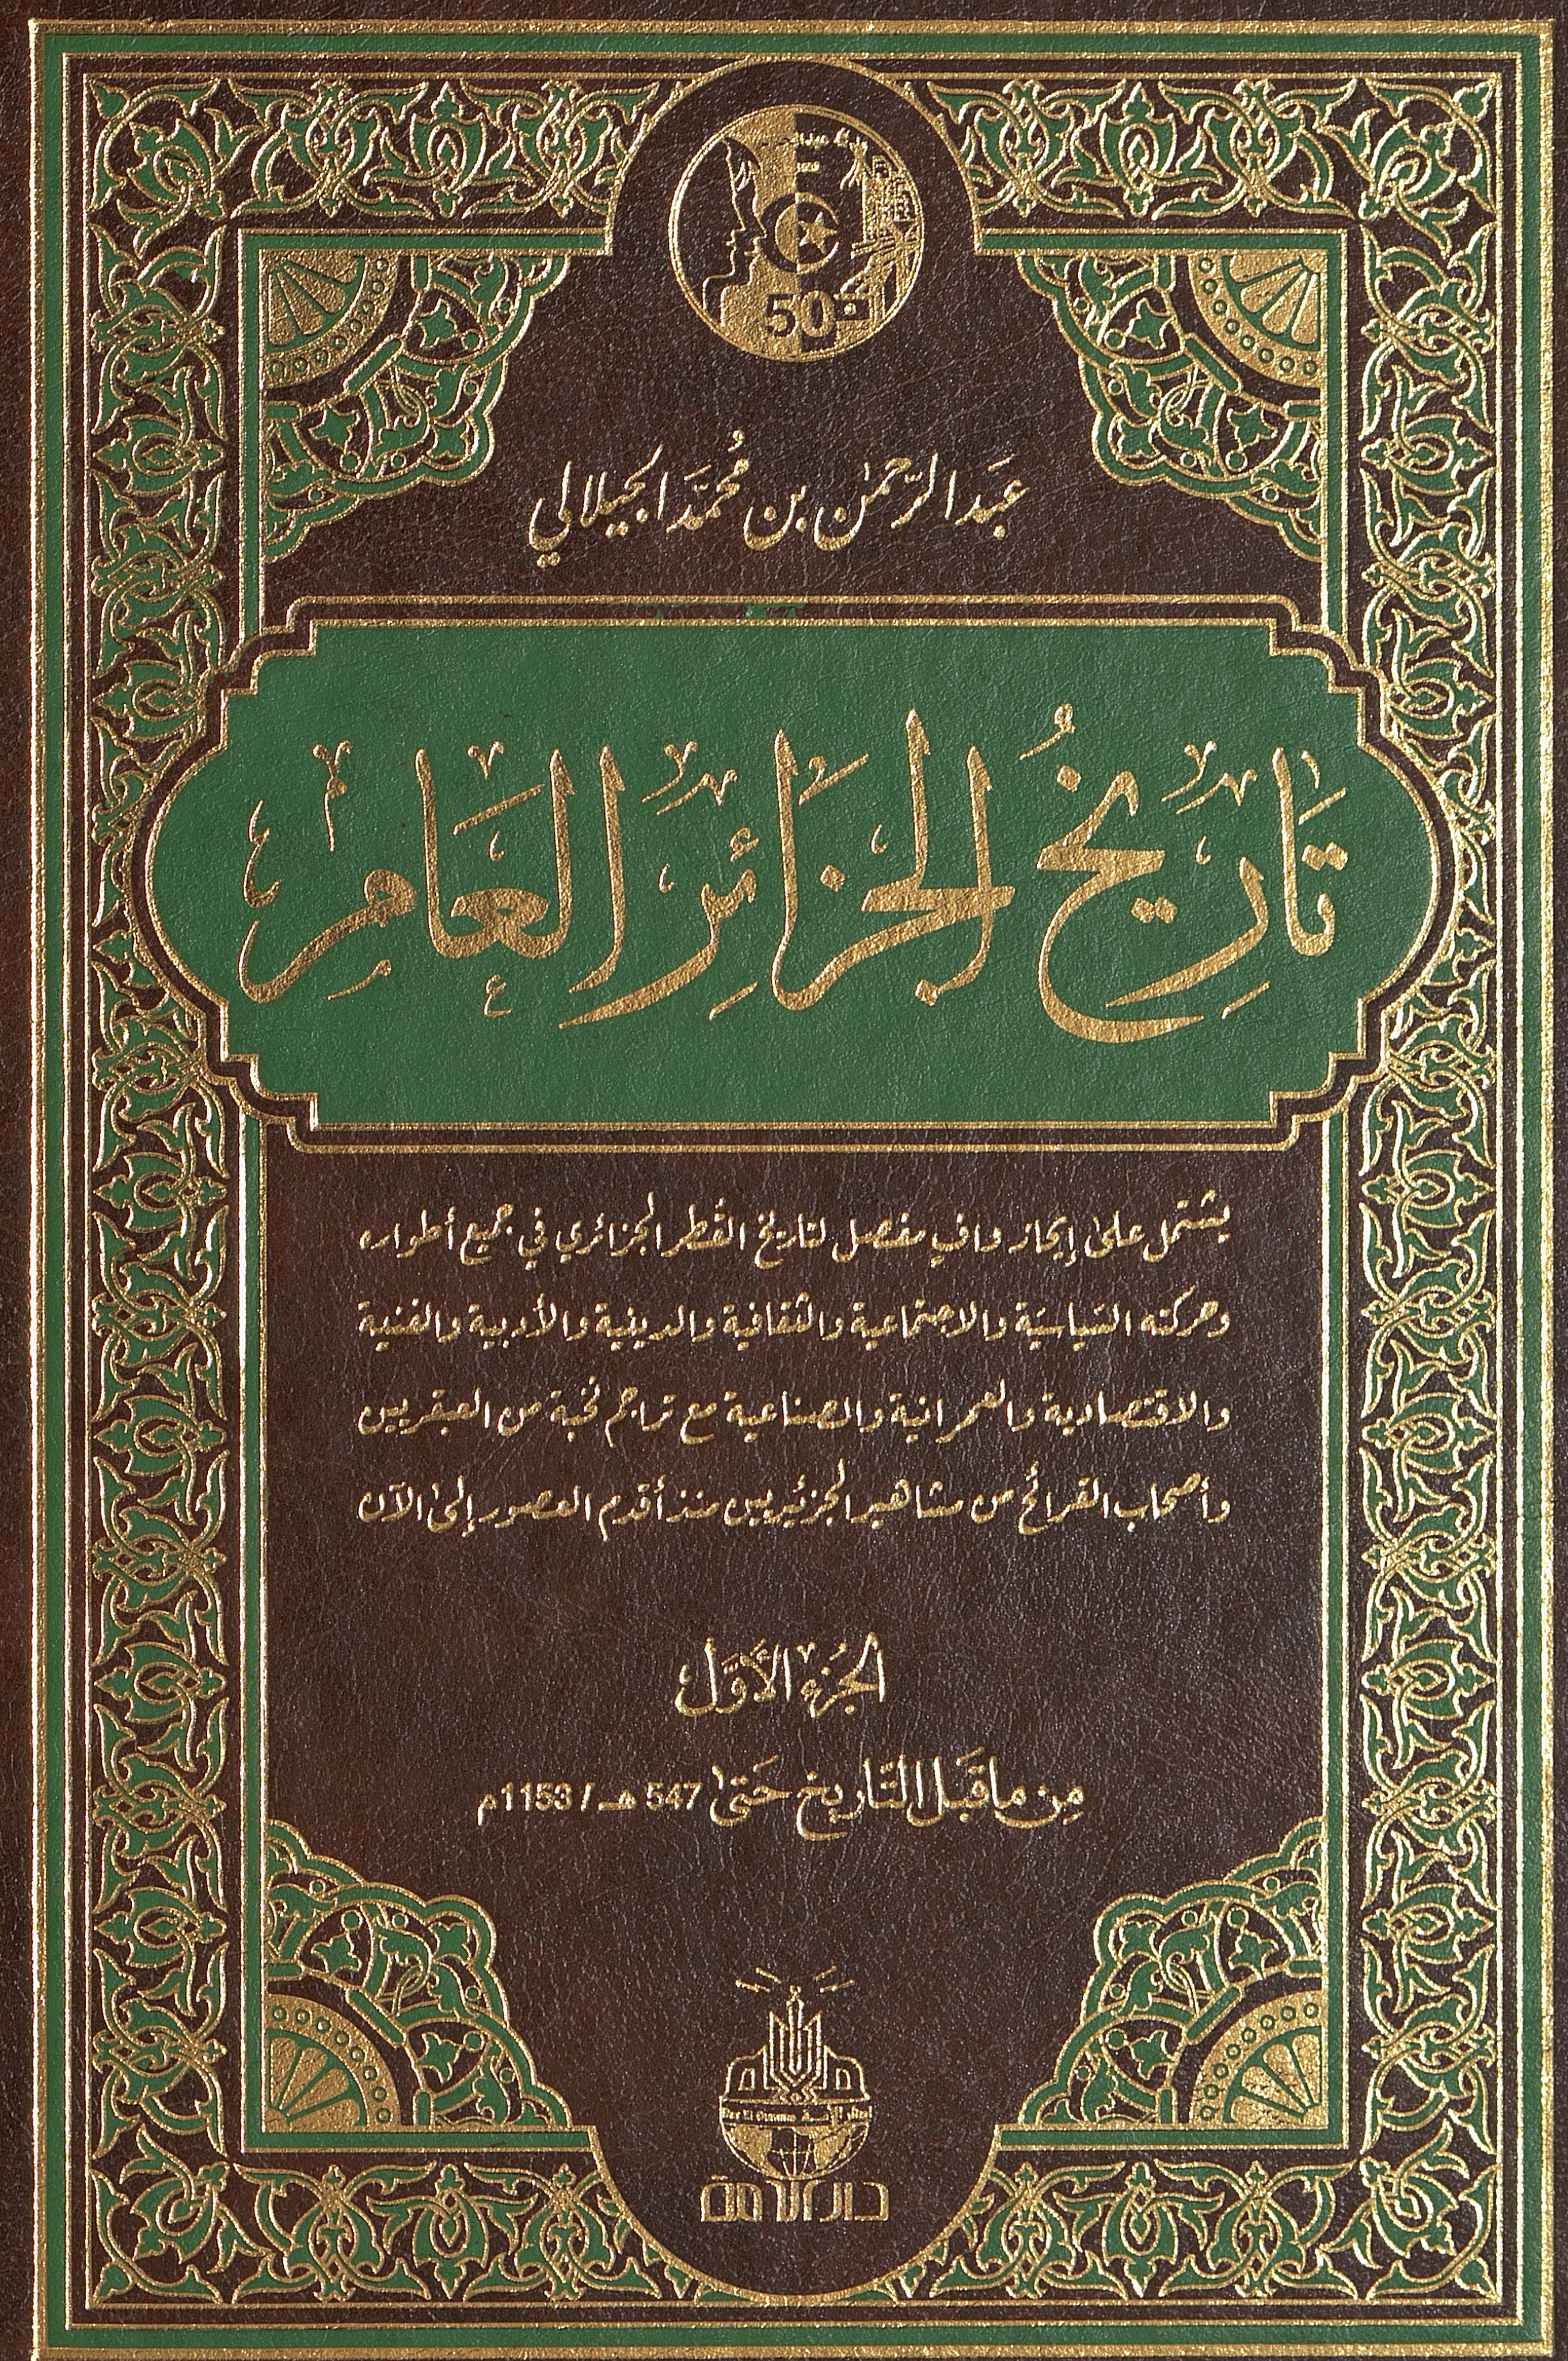 50
عَبَد الرَّحمٰن بن مُحَمَّد الجيلالي
تَارِيخُ الجَزَائِر العَام
يشتمل على إيجاز وافٍ مفصل لتاريخ القُطر الجزائري في جميع أطواره
وحركته السَياسيَة والاجتماعية والثقافية والدينية والأدبية والفنية
والاقتصادية والعمرانية والصناعية مع تراجم نخبة من العبقريين
وأصحاب القرائح من مشاهير الجزئيريين منذ أقدم العصور إلى الآن
الجُزء الأَوَّل
مِن ما قَبَل التَّاريخ حَتىٰ 547 هـ / 1153م
دار الأمة